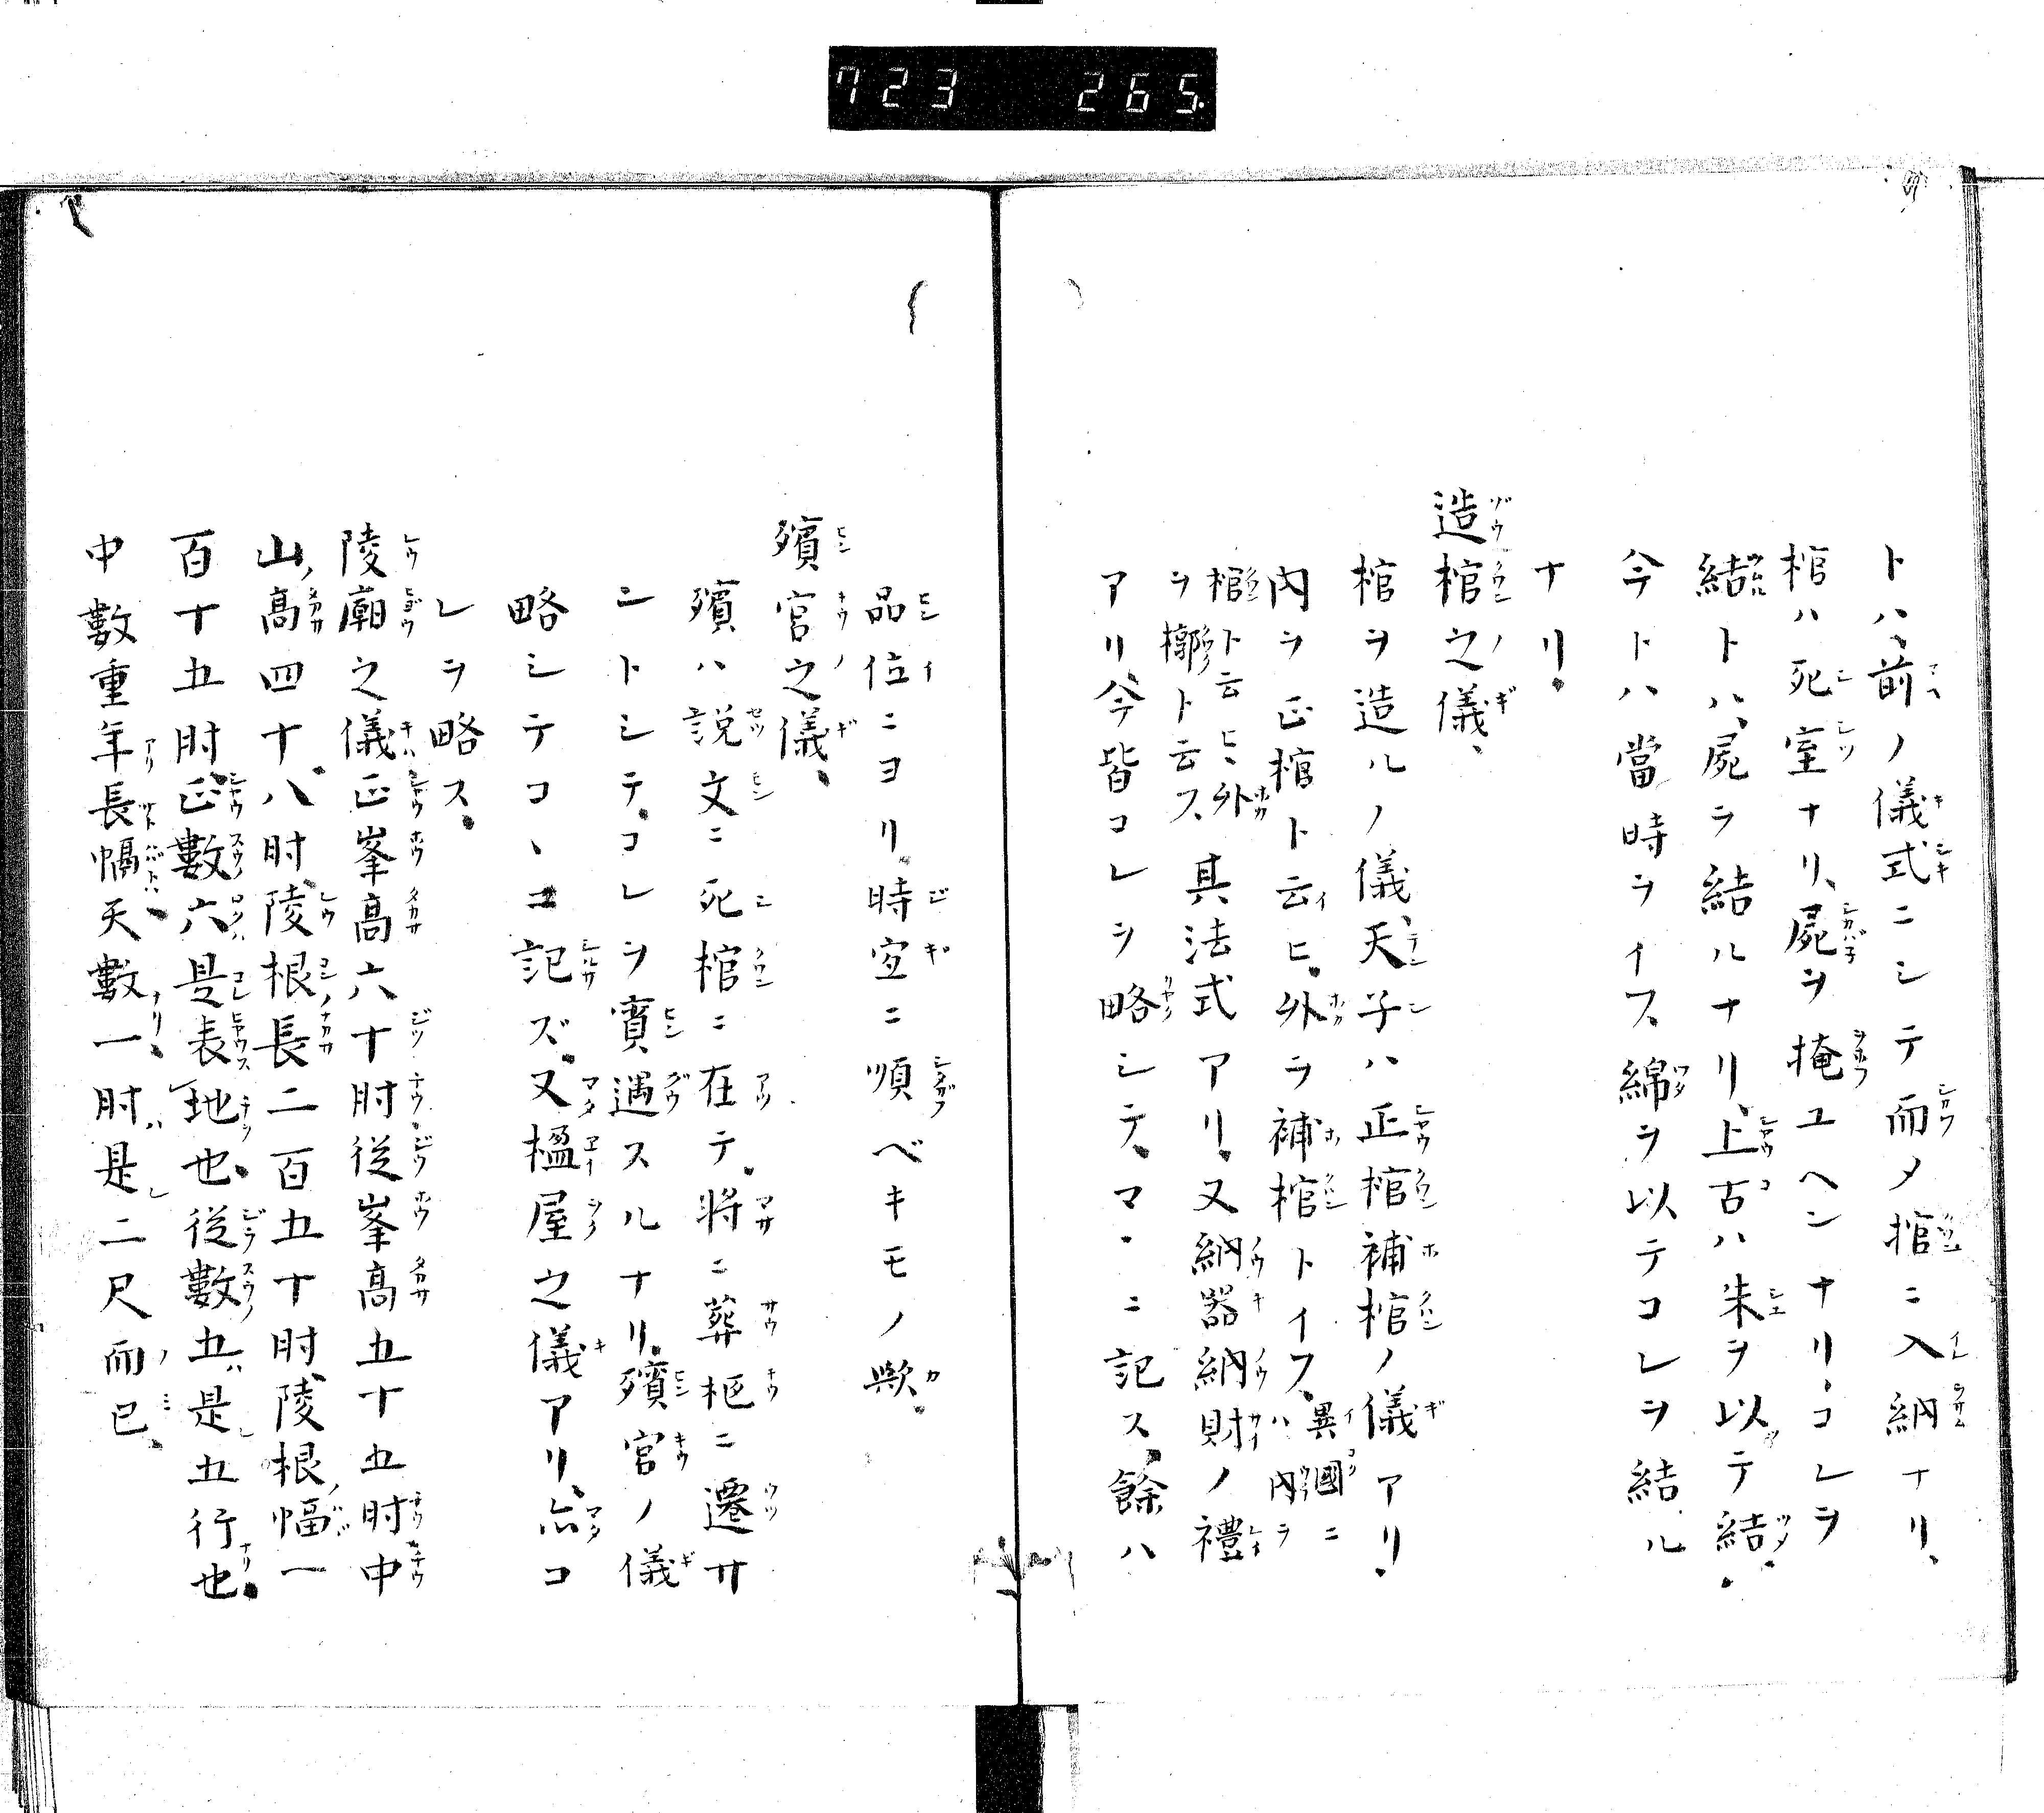 723 265
トハ、前ノ儀式ニシテ而メ棺ニ入納ナリ、
棺ハ死室ナリ、屍ヲ掩ユヘンナリ、コレヲ
結トハ、屍ヲ結ルナリ、上古ハ朱ヲ以テ結、
今トハ當時ヲイフ、綿ヲ以テコレヲ結ル
ナリ、
造棺之儀、
棺ヲ造ルノ儀、天子ハ正棺補棺ノ儀アリ、
内ヲ正棺ト云ヒ、外ヲ補棺トイフ、異國ニハ内ヲ
棺ト云ヒ、外ヲ槨ト云フ、其法式アリ、又納器納財ノ禮
アリ、今皆コレヲ略シテ、マヽニ記ス、餘ハ
品位ニヨリ、時宜ニ順ベキモノ歟、
殯宮之儀、
殯ハ説文ニ死棺ニ在テ、将ニ葬柩ニ遷サ
ントシテ、コレヲ賓遇スルナリ、殯宮ノ儀
略シテコヽニ記ズ、又楹屋之儀アリ、亦コ
レヲ略ス、
陵廟之儀正峯髙六十肘從峯髙五十五肘中
山髙四十八肘、陵根長二百五十肘、陵根幅一
百十五肘、正數六是表地也、從數五是五行也、
中數重年長幅天數一肘是二尺而已、